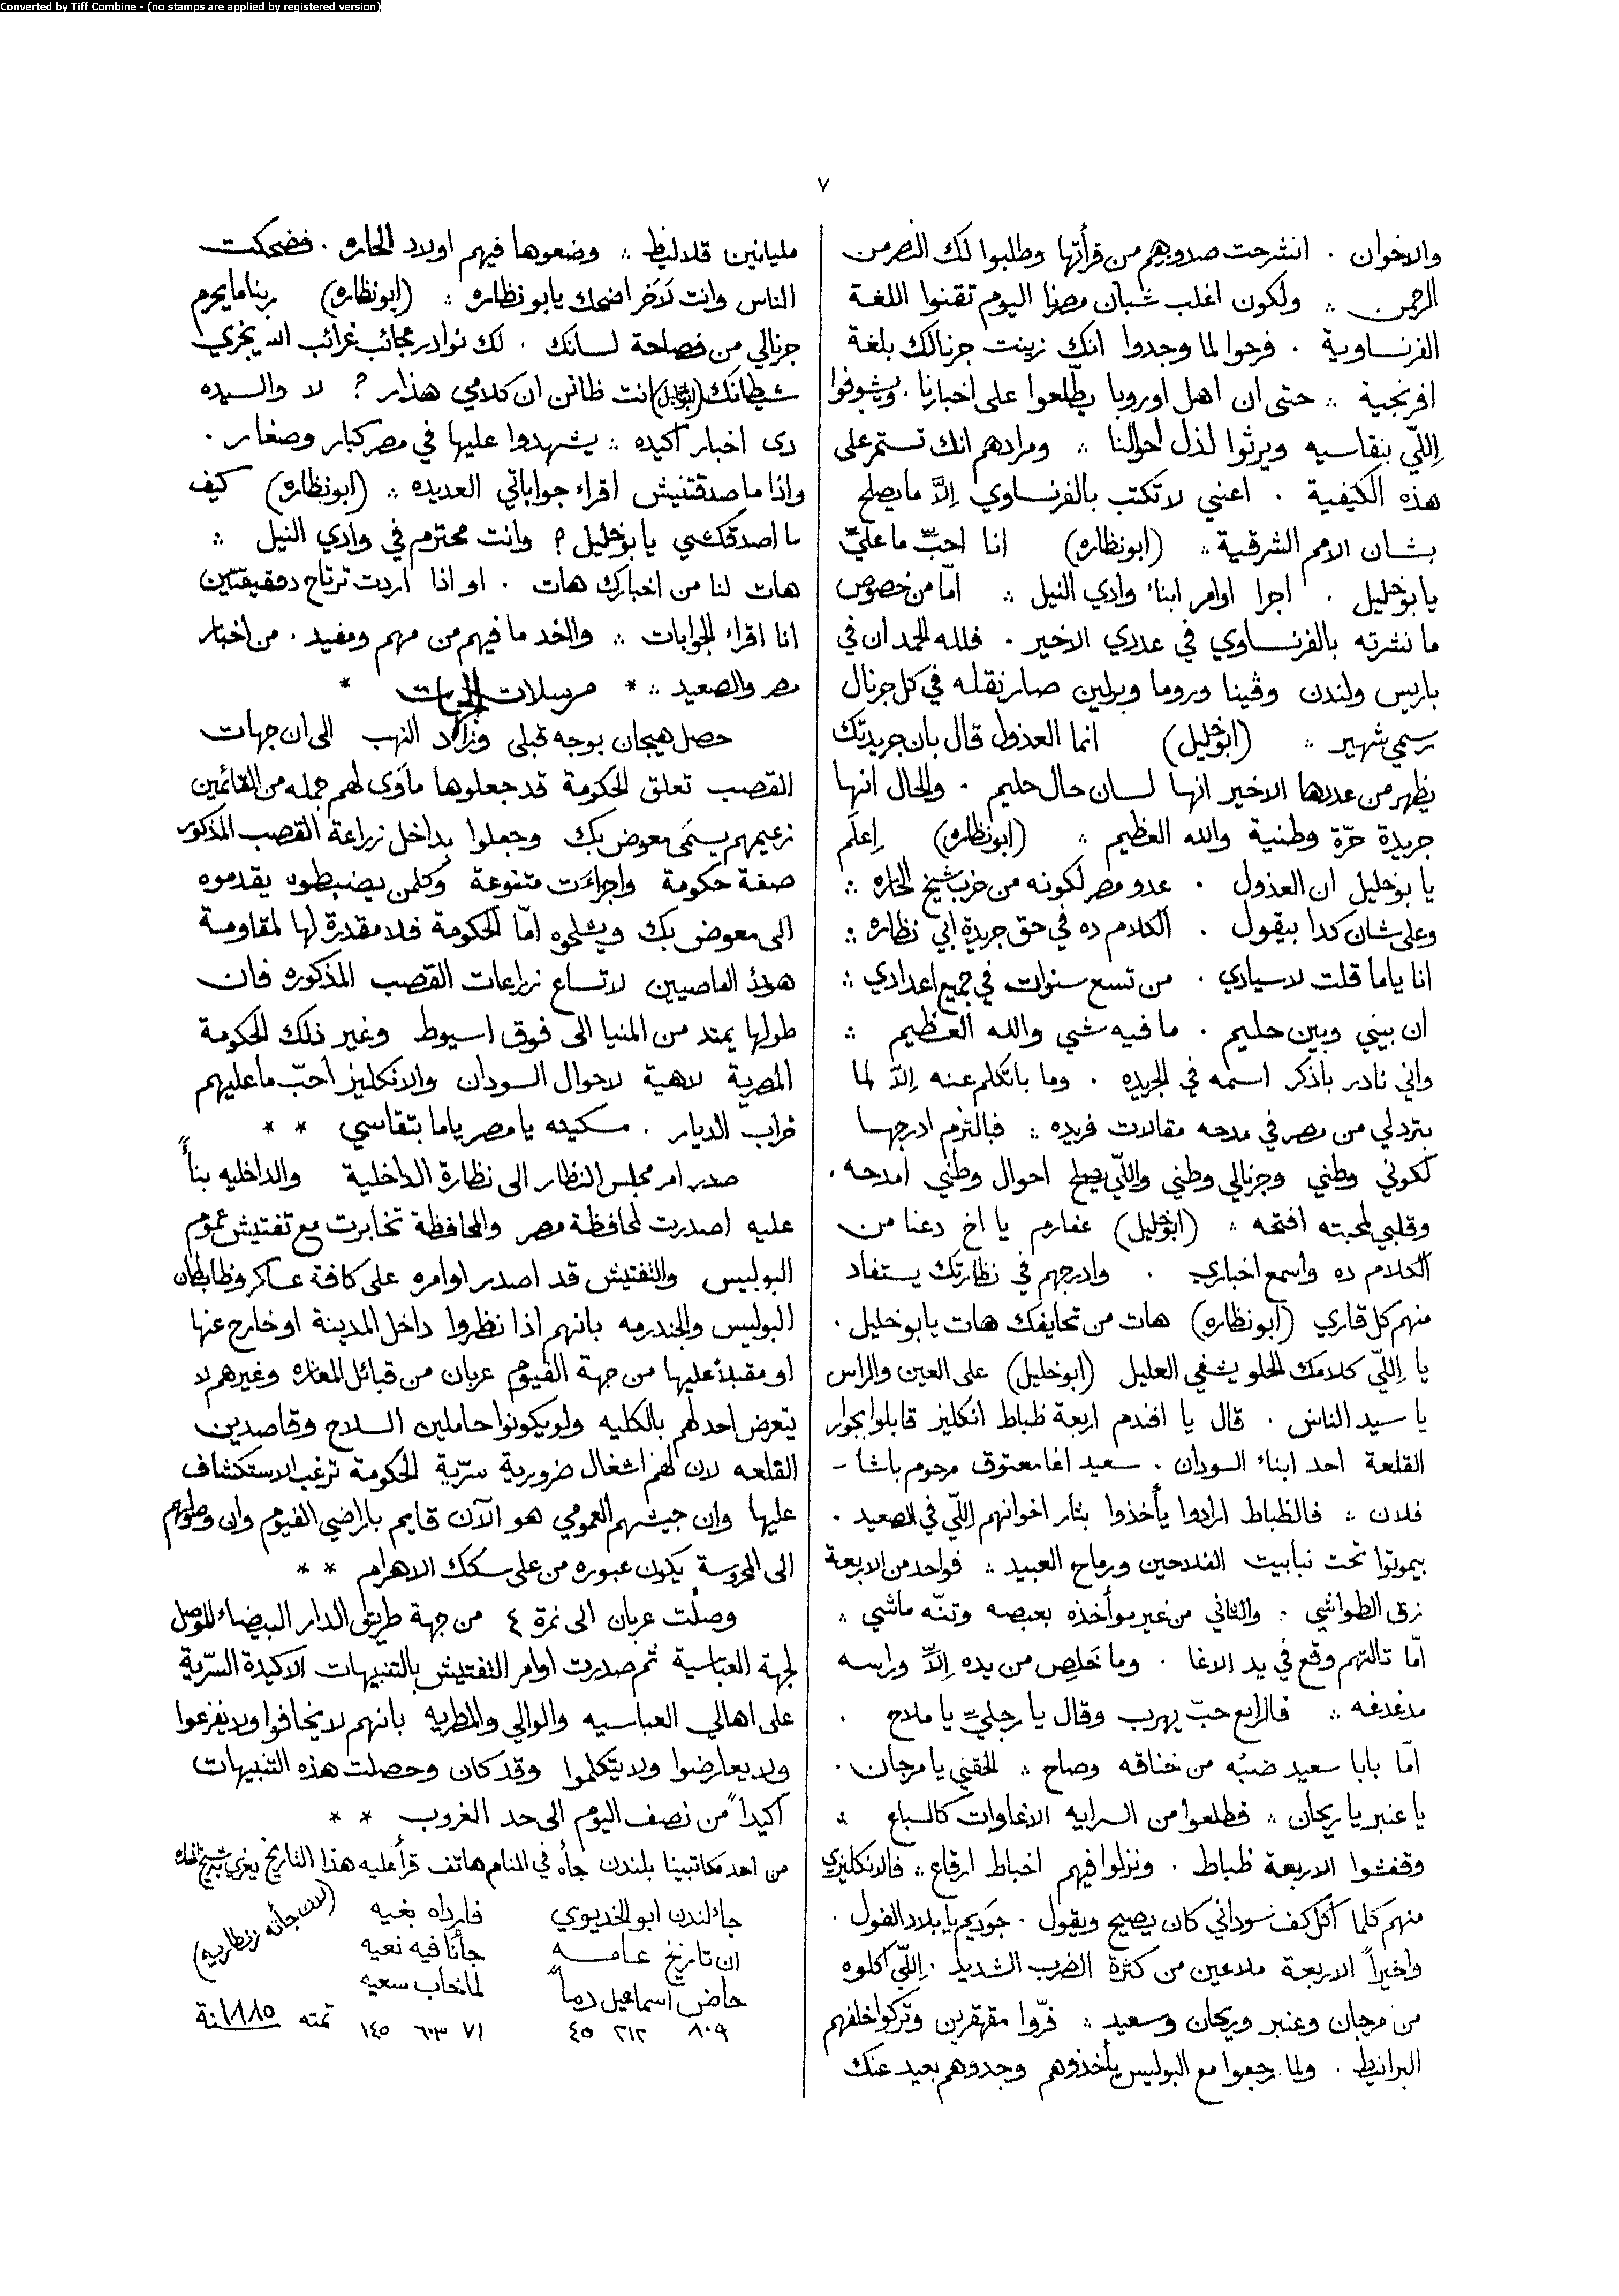 Converted by Tiff Combine - (no stamps are applied by registered version)
٧
والاخوان . انشرحت صدورهم من قرأتها وطلبوا لك النصر من
الرحمن ∴ ولكون اغلب شبان مصرنا اليوم تقنوا اللغة
الفرنساوية . فرحوا لما وجدوا انك زينت جرنالك بلغة
افرنجية ∴ حتى ان اهل اوروبا يطّلعوا على اخبارنا . ويشوفوا
اِللّي بنقاسيه ويرثوا لذل احوالنا ∴ ومرادهم انك تستمر على
هذه الكيفية . اعني لا تكتب بالفرنساوي اِلاَّ ما يصلح
بشان الامم الشرقية ∴ (ابونظاره) انا احبّ ما عليّ
يا بوخليل . اجرا اوامر ابناء وادي النيل ∴ امّا من خصوص
ما نشرته بالفرنساوي في عددي الاخير . فلله الحمد ان في
باريس ولندن وڤينا وروما وبرلين صار نقله في كل جرنال
رسمي شهير ∴ (ابوخليل) انما العذول قال بان جريدتك
يظهر من عددها الاخير انها لسان حال حليم . والحال انها
جريدة حرّة وطنية والله العظيم ∴ (ابونظاره) اِعلَم
يا بوخليل ان العذول . عدو مصر لكونه من حزب شيخ الحاره ∴
وعلى شان كدا بيقول . الكلام ده في حق جريدة ابي نظاره ∴
انا ياما قلت لاسيادي . من تسع سنوات في جميع اعدادي ∴
ان بيني وبين حليم . ما فيه شي والله العظيم ∴
واني نادر باذكر اسمه في الجريده . وما باتكلم عنه اِلاّ لما
بتردلي من مصر في مدحه مقالات فريده ∴ فبالتزم ادرجها
لكوني وطني وجرنالي وطني واللّي يصلح احوال وطني امدحه .
وقلبي لمحبته افتحه ∴ (ابوخليل) عفارم يا اخ دعنا من
الكلام ده واسمع اخباري . وادرجهم في نظارتك يستفاد
منهم كل قاري (ابونظاره) هات من تحايفك هات يابوخليل .
يا اِللّي كلامك الحلو يشفي العليل (ابوخليل) على العين والراس
يا سيد الناس . قال يا افندم اربعة ظباط انكليز قابلوا بجوار
القلعة احد ابناء السودان . سعيد اغا معتوق مرحوم باشا -
فلان ∴ فالظباط ارادوا يأخذوا بثار اخوانهم اللّي في الصعيد .
بيموتوا تحت نبابيت الفلاحين ورماح العبيد ∴ فواحد من الاربعة
زق الطواشي . والثاني من غير مواخذه بعبصه وتنّه ماشي ∴
امّا تالتهم وقع في يد الاغا . وما خَلِص من يده اِلاّ وراسه
مدغدغه ∴ فالرابع حبّ يهرب وقال يا رجليّ يا ملاح .
امّا بابا سعيد ضبُه من خناقه وصاح ∴ الحقني يا مرجان .
يا عنبر يا ريحان ∴ فطلعوا من السرايه الاغاوات كالسباع ∴
وقفشوا الاربعة ظباط . ونزلوا فيهم اخباط ارقاع ∴ فالانكليزي
منهم كلما اكل كف سوداني كان يصيح ويقول . جوديم يا بلاد الفول .
واخيراً الاربعة ملاعين من كثرة الضرب الشديد . اِللّي اكلوه
من مرجان وعنبر وريحان وسعيد ∴ فرّوا مقهقرين وتركوا خلفهم
البرانيط . ولما رجعوا مع البوليس يأخذوهم وجدوهم بعيد عنك
مليانين قلاليط ∴ وضعوها فيهم اولاد الحاره . فضحكت
الناس وانت لاَخر اضحك يابو نظاره ∴ (ابونظاره) ربنا ما يحرم
جرنالي من فصاحة لسانك . لك نوادر عجائب غرائب الله يخزي
شيطانك (ابوخليل) انت ظانن ان كلامي هذار ؟ لا والسيده
دى اخبار اكيده ∴ يشهدوا عليها في مصر كبار وصغار .
واذا ما صدقتنيش اقراء جواباتي العديده ∴ (ابونظاره) كيف
ما اصدقكشي يا بوخليل ؟ وانت محترم في وادي النيل ∴
هات لنا من اخبارك هات . او اذا اردت ترتاح دقيقتين
انا اقراء الجوابات ∴ واخد ما فيهم من مهم ومفيد . من اخبار
مصر والصعيد ∴ * مرسلات الجهات *
حصل هيجان بوجه قبلى وزاد النهب الى ان جهات
القصب تعلق الحكومة قد جعلوها ماَوى لهم جمله من القائمين
زعيمهم يسمّى معوض بك وجعلوا بداخل زراعة القصب المذكور
صفة حكومة واجراءَت متنوعة وكلمن يضبطوه يقدموه
الى معوض بك ويشلحوه امّا الحكومة فلا مقدرة لها لمقاومة
هولاء العاصيين لاتساع زراعات القصب المذكوره فان
طولها يمتد من المنيا الى فوق اسيوط وغير ذلك الحكومة
المصرية لاهية لاحوال السودان والانكليز احبّ ما عليهم
خراب الديار . مسكينه يا مصر ياما بتقاسي * *
صدر امر مجلس النظار الى نظارة الداخلية والداخليه بنأً
عليه اصدرت لمحافظة مصر والمحافظة تخابرت مع تفتيش عموم
البوليس والتفتيش قد اصدر اوامره على كافة عساكر وظابطان
البوليس والجندرمه بانهم اذا نظروا داخل المدينة او خارج عنها
او مقبلاً عليها من جهة الفيوم عربان من قبائل المغاره وغيرهم لا
يتعرض احد لهم بالكليه ولو يكونوا حاملين السلاح وقاصدين
القلعه لان لهم اشغال ضرورية سرّية الحكومة ترغب الاستكشاف
عليها وان جيشهم العمومي هو الآن قايم باراضي الفيوم وان وصلوهم
الى المحروسة يكون عبوره من على سكك الاهرام * *
وصلت عربان الى نمرة ٤ من جهة طريق الدار البيضاء للتوصل
لجهة العباسية ثم صدرت اوامر التفتيش بالتنبيهات الاكيدة السّرية
على اهالي العباسيه والوالي والمطريه بانهم لا يخافوا ولا يفزعوا
ولا يعارضوا ولا يتكلموا وقد كان وحصلت هذه التنبيهات
اكيداً من نصف اليوم الى حد الغروب * *
من احد مكاتبينا بلندن جأه في المنام هاتف قرأ عليه هذا التاريخ يغري بشيخ الحاره
جاء لندن ابو الخديوي فارداه بغيه
ان تاريخ عامه جأنا فيه نعيه
خاض اسماعيل دماً لما خاب سعيه
٨٠٩ ٢١٢ ٤٥ ٧١ ٦٠٣ ١٤٥ تمته سنة ١٨٨٥